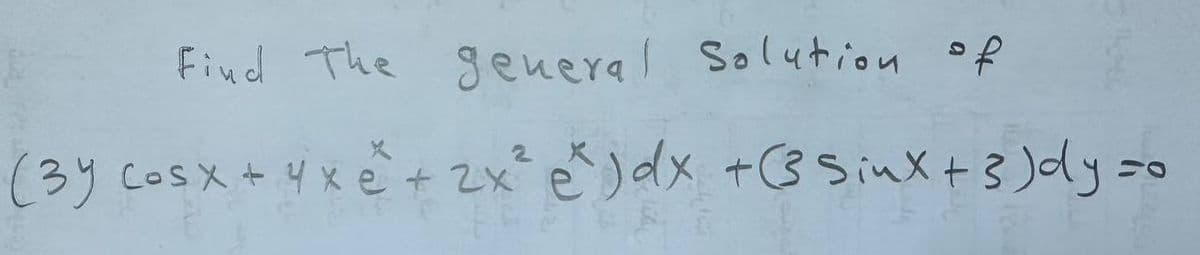 Find The general Solution of
(3y cosx + 4xe^x + 2x² e^x)dx + (3 sinx + 3)dy = 0